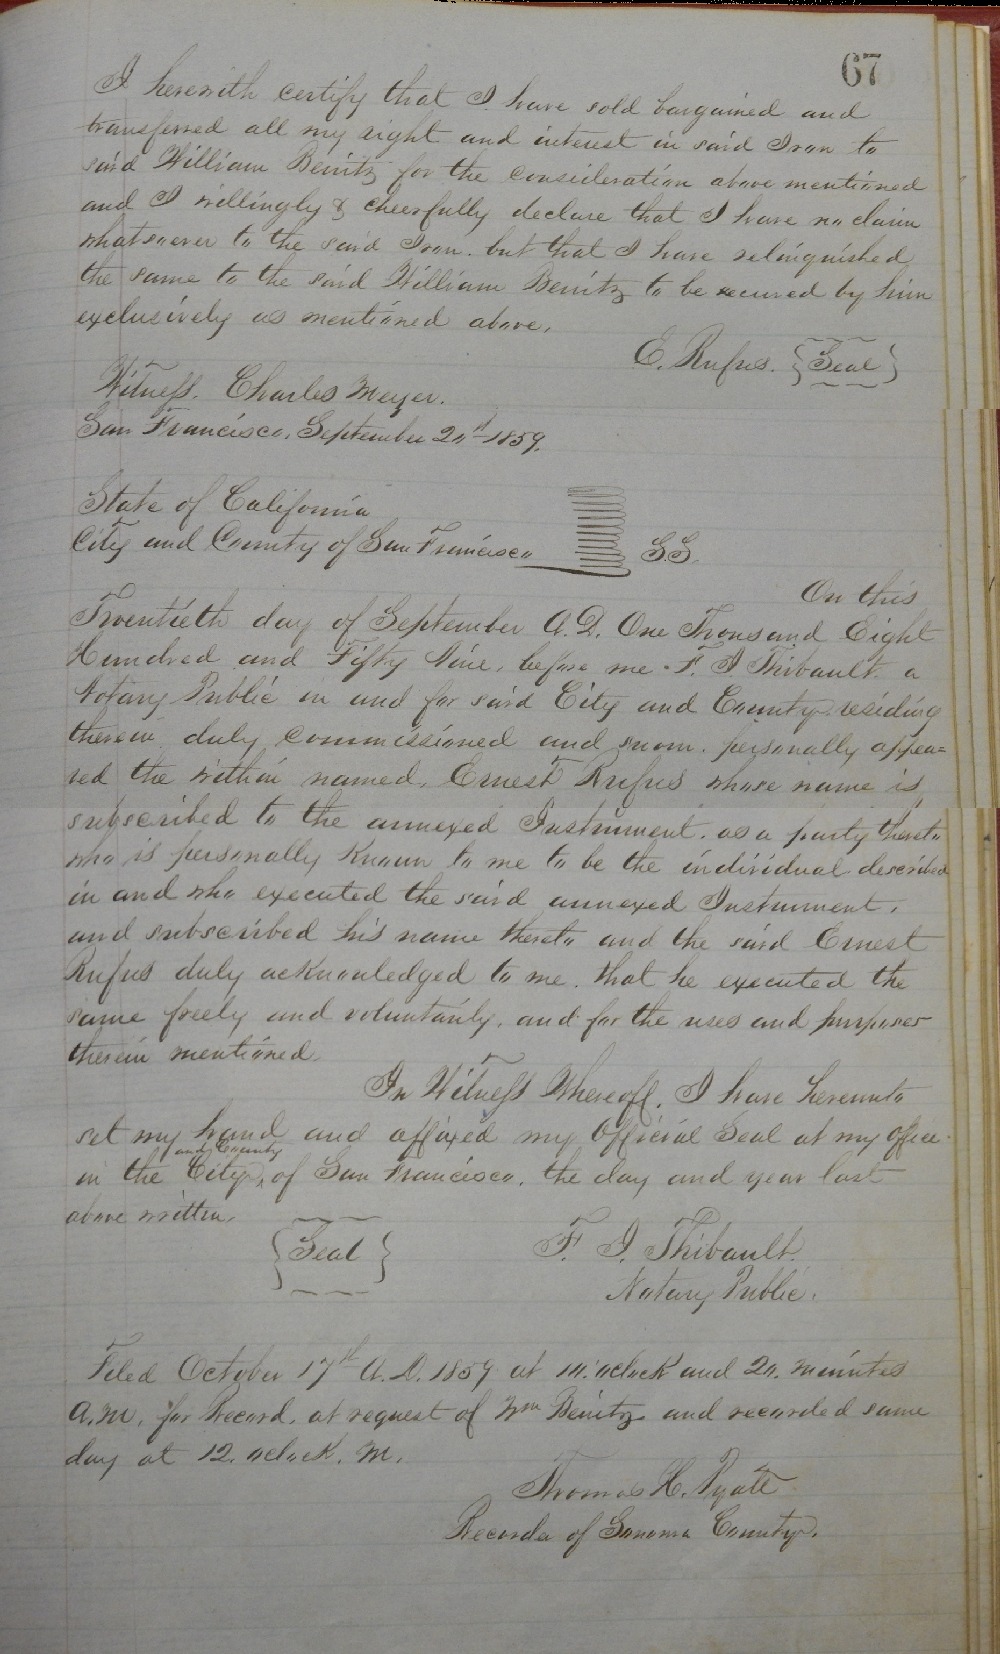 67
I herewith certify that I have sold bargained and
transferred all my right and interest in said Iron to
said William Benitz for the consideration above mentioned
and I willingly & cheerfully declare that I have no claim
whatsoever to the said Iron. but that I have relinquished
the same to the said William Benitz to be secured by him
exclusively as mentioned above.
E. Rufus. {Seal}
Witness. Charles Meyer.
San Francisco, September 20th 1859.
State of California
City and County of San Francisco S.S.
On this
Twentieth day of September A.D. One Thousand Eight
Hundred and Fifty Nine, before me F. J. Thibault. a
Notary Public in and for said City and County, residing
therein duly commissioned and sworn. personally appea=
red the within named, Ernest Rufus whose name is
subscribed to the annexed Instrument. as a party thereto
who is personally known to me to be the individual described
in and who executed the said annexed Instrument.
and subscribed his name thereto and the said Ernest
Rufus duly acknowledged to me. that he executed the
same freely and voluntarily. and for the uses and purposes
therein mentioned.
In Witness Whereoff. I have hereunto
set my hand and affixed my Official Seal at my office
and County
in the City, of San Francisco, the day and year last
above written.
{Seal} F. J. Thibault.
Notary Public.
Filed October 17th A.D. 1859 at 10. oclock and 20. minutes
A.M. for Record. at request of Wm Benitz and recorded same
day at 12. oclock. M.
Thomas H. Pyatt
Recorder of Sonoma County.